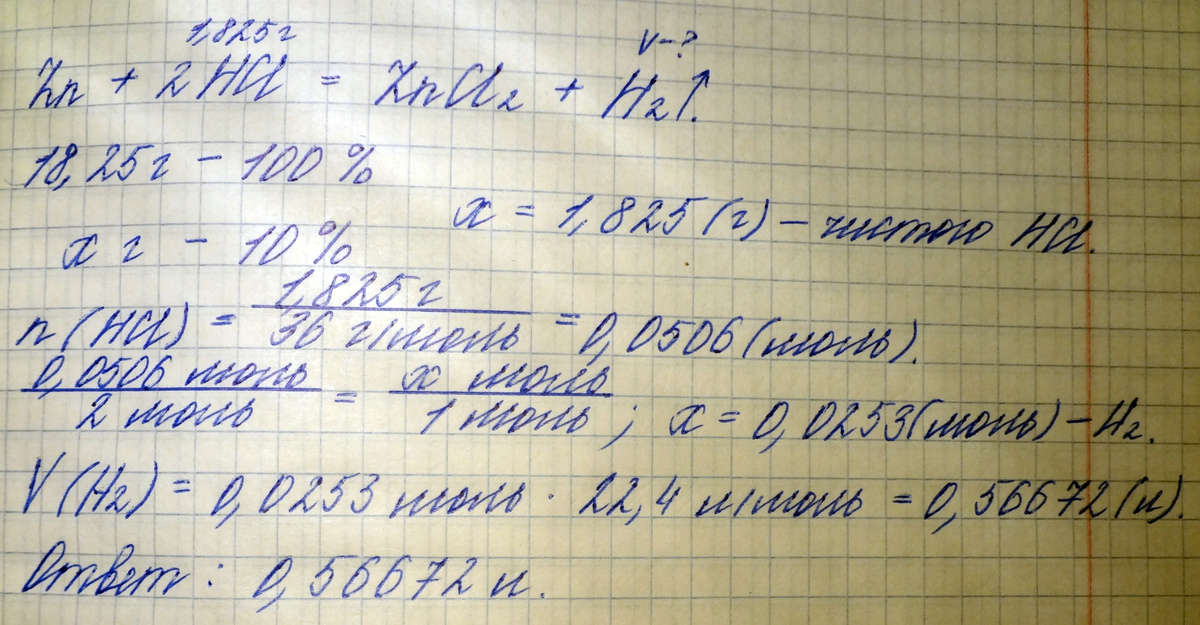 1,825 г
V – ?
Zn + 2HCl = ZnCl₂ + H₂↑
18,25 г – 100 %
x = 1,825 (г) – чистого HCl.
x г – 10 %
n (HCl) = 1,825 г / 36 г/моль = 0,0506 (моль).
0,0506 моль / 2 моль = x моль / 1 моль ; x = 0,0253 (моль) – H₂.
V (H₂) = 0,0253 моль · 22,4 л/моль = 0,56672 (л).
Ответ : 0,56672 л.